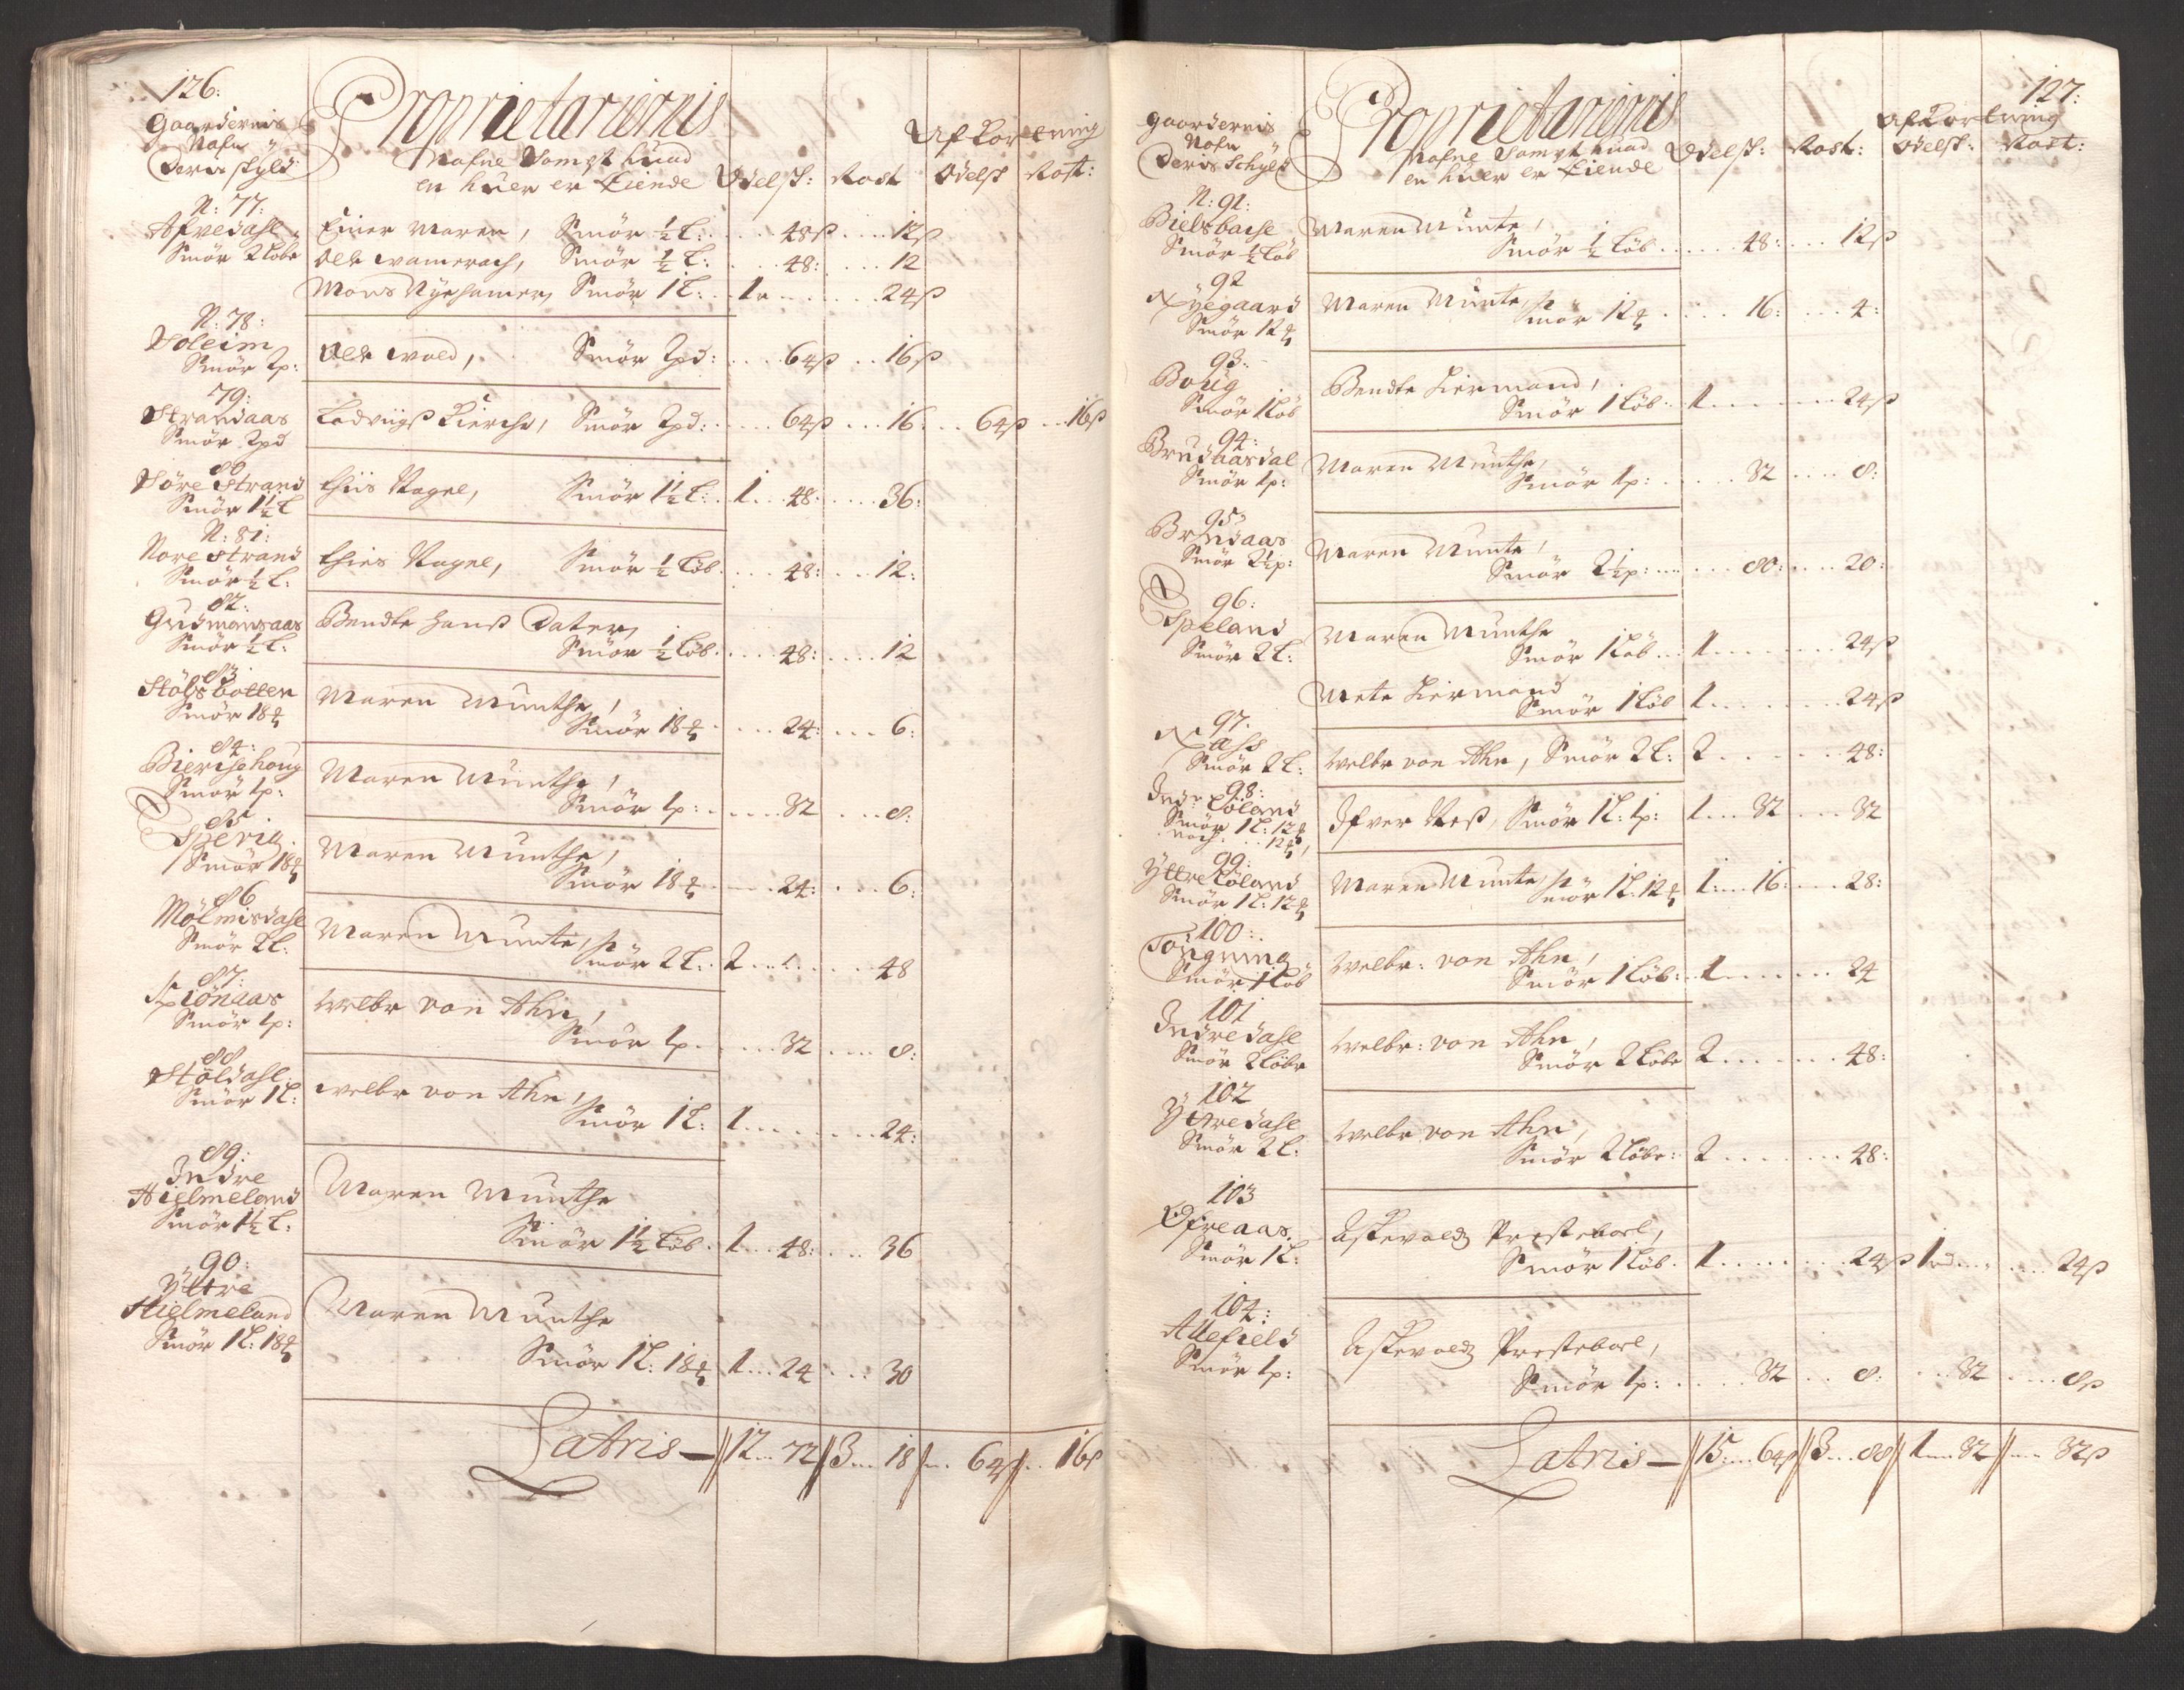 126:
Gaardernis
Nafn
Deris skyld
Proprietariernis
Nafne Sampt huad
en huer er Eiende
Odelsk: Rost
Afkortning
Odelsk Rost:
N: 77:
Afvedahl
Smör 2 löbe
Einer Maren, Smör ½ l: 48ß 12ß
Ole Wamerach, Smör ½ l: 48: 12
Mons Nyehamer, Smör 1 l: 1 24ß
N: 78:
Soleim
Smör 2p:
Ole Wold, Smör 2pd: 64ß 16ß
79:
Strandaas
Smör 2pd
Ladvigß Kierche, Smör 2pd: 64ß 16: 64ß 16ß
80
Söre Strand
Smör 1½ l
Thiis Nagel, Smör 1½ l: 1 48: 36:
N: 81:
Nore Strand
Smör ½ l:
Thies Nagel, Smör ½ löb. 48: 12:
82:
Gudmonsaas
Smör ½ l:
Bendte Hanß Dater,
Smör ½ löb. 48: 12
83
Stölsbotten
Smör 18
Maren Munthe,
Smör 18 24: 6:
84:
Bierchehoug
Smör 1p:
Maren Munthe,
Smör 1p: 32 8:
85
Sperig
Smör 18
Maren Munthe,
Smör 18 24: 6:
86
Mölmisdahl
Smör 2 l:
Maren Munte,
Smör 2 l: 2 48
87:
Schiönaas
Smör 1p:
Welbr von Ahn,
Smör 1p. 32 8:
88
Stöldahl
Smör 1 l:
Welbr von Ahn,
Smör 1 l: 1 24:
89:
Indre
Hielmeland
Smör 1½ l:
Maren Munthe
Smör 1½ löb. 1 48: 36
90:
Yttre
Hielmeland
Smör 1 l: 18
Maren Munthe
Smör 1 l: 18 1 24 30
Latris — 12 72 3 18 64ß 16ß
127:
Gaardernis
Nafn
Deris Schyld
Proprietariernis
Nafne Sampt huad
en huer er Eiende
Odelsk: Rost:
Afkortning
Odelsk: Rost:
N: 91:
Bielsbache
Smör ½ löb
Maren Munte,
Smör ½ löb 48: 12ß
92
Nyegaard
Smör 12
Maren Munte, Smör 12 16: 4:
93:
Houg
Smör 1 löb
Bendte Liermand,
Smör 1 löb: 1 24ß
94:
Brudaasdal
Smör 1p:
Maren Munthe,
Smör 1p: 32 8:
95
Brudaas
Smör 2½p:
Maren Munte,
Smör 2½p: 80: 20:
96:
Espeland
Smör 2 l:
Maren Munthe
Smör 1 löb 1 24ß
Mete Liermand
Smör 1 löb 1 24ß
97.
Smör 2 l:
Welbr von Ahn, Smör 2 l: 2 48:
98:
Indr Löland
Smör 1 l: 12
noch 12
Ifver Neß, Smör 1 l: 1p: 1 32 32
99:
Yttre Löland
Smör 1 l: 12
Maren Munte, Smör 1 l. 12 1 16: 28:
100:
Smör 1 löb
Welbr: von Ahn,
Smör 1 löb: 1 24
101
Indredahl
Smör 2 löbe
Welbr: von Ahn,
Smör 2 löbe 2 48:
102
Ytredahl
Smör 2 l:
Welbr von Ahn,
Smör 2 löbe: 2 48:
103
Öfreaas.
Smör 1 l:
Askevolds Prestebol,
Smör 1 löb. 1 24ß 1rd 24ß
104:
Allefield
Smör 1p:
Askevolds Prestebol,
Smör 1p: 32 8: 32 8ß
Latris — 15 64ß 3 88 1 32 32ß